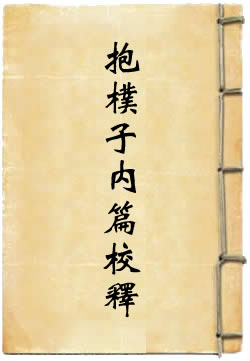 抱樸子内篇校釋